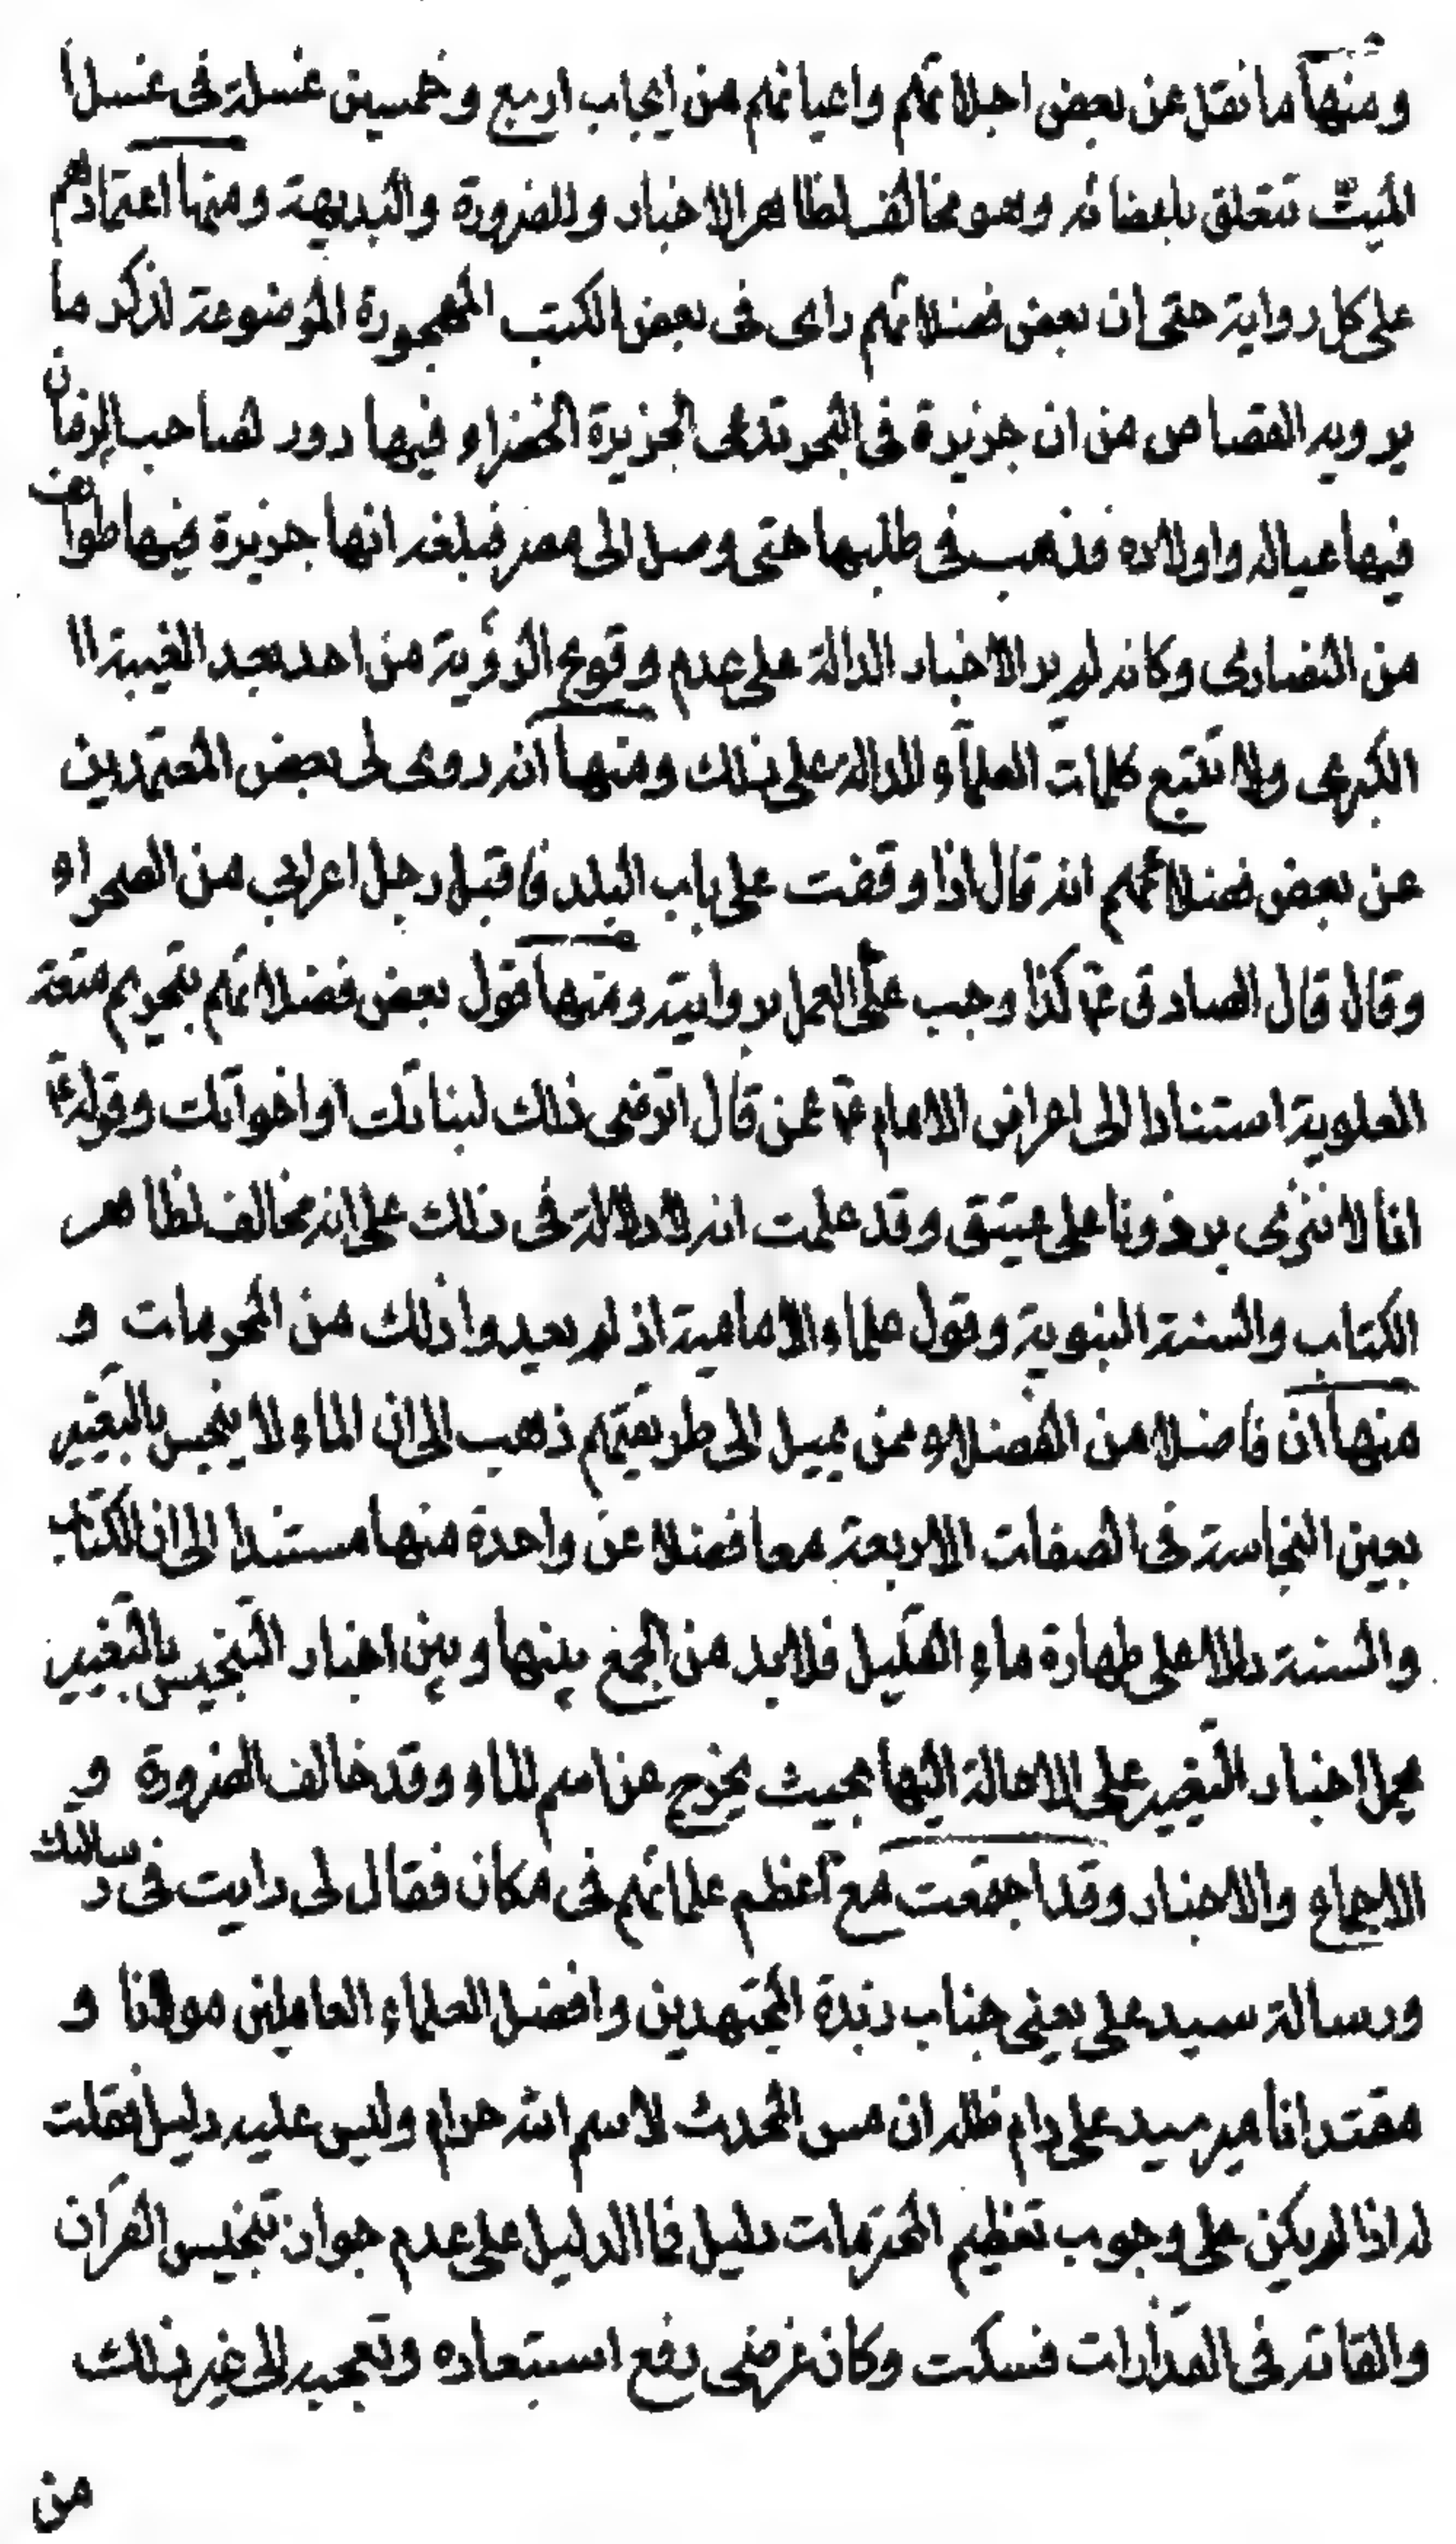 ومنها ما نقل عن بعض اجلائهم واعيانهم من ايجاب اربع وخمسين غسلة في غسل ا
الميت تتعلق باعضائه وهو مخالف لظاهر الاخبار وللضرورة والبديهة ومنها اعتمادهم
على كل رواية حتى ان بعض فضلائهم راى في بعض الكتب المهجورة الموضوعة لذكر ما
يرويه القصاص من ان جزيرة في البحر تدعى الجزيرة الخضراء وفيها دور لصاحب الزمان
فيها عياله واولاده فذهب في طلبها حتى وصل الى مصر فبلغه انها جزيرة فيها طوائف
من النصارى وكانه لم ير الاخبار الدالة على عدم وقوع الرؤية من احد بعد الغيبة ا
الكبرى ولا تتبع كلمات العلماء الدالة على ذلك ومنها انه روى لى بعض المعتمدين
عن بعض فضلائهم انه قال اذا وقفت على باب البلد فاقبل رجل اعرابي من الصحراء
وقال قال الصادق ع كذا وجب علّى العمل بروايته ومنها قول بعض فضلائهم بتحريم متعة
العلوية استنادا الى اعراض الامام ع عمن قال اترضى ذلك لبناتك او اخواتك وقوله ع
انا لا ننزى برذونا على عتيق وقد علمت انه لا دلالة في ذلك على انه مخالف لظاهر
الكتاب والسنة النبوية وقول علماء الامامية اذ لم يعدوا ذلك من المحرمات و
منها ان فاضلا من الفضلاء ممن يميل الى طريقتهم ذهب الى ان الماء لا ينجس بالتغيير
بعين النجاسة في الصفات الاربعة معا فضلا عن واحدة منها مستندا الى ان الكتاب
والسنة دلا على طهارة ماء القليل فلابد من الجمع بينها وبين اخبار التنجيس بالتغيير
بحمل اخبار التغيير على الاحالة اليها بحيث يخرج عن اسم الماء وقد خالف الضرورة و
الاجماع والاخبار وقد اجتمعت مع اعظم علمائهم في مكان فقال لى رايت في رسالتك
ورسالة سيد على يعنى جناب زبدة المجتهدين وافضل العلماء العاملين مولانا و
مقتدانا مير سيد على دام ظله ان مس المحدث لاسم الله حرام وليس عليه دليل فقلت
له اذا لم يكن على وجوب تعظيم المحترمات دليل فما الدليل على عدم جواز تنجيس القرآن
والقائه في القذارات فسكت وكان غرضى رفع استبعاده وتعجبه الى غير ذلك
من